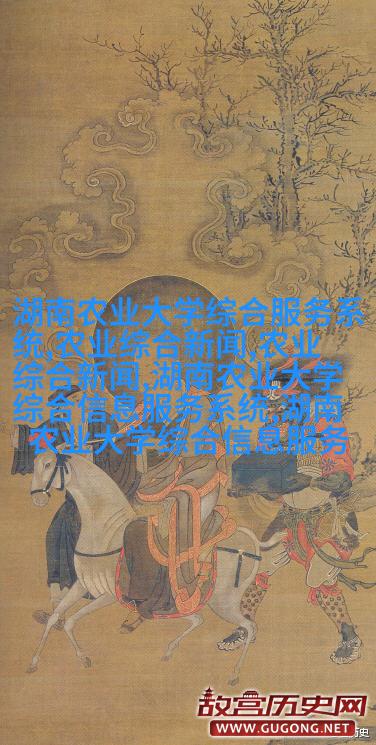 湖南农业大学综合服务系
统,农业综合新闻,农业
综合新闻,湖南农业大学
综合信息服务系统,湖南
农业大学综合信息服务
故宫历史网
WWW.GUGONG.NET
历史